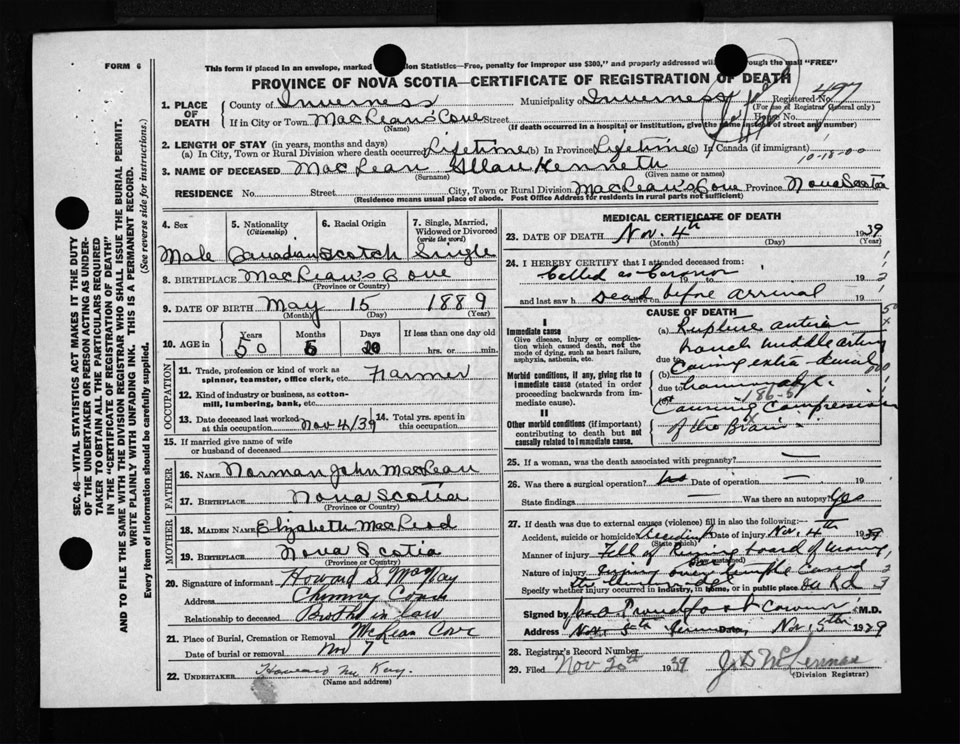 FORM 6
This form if placed in an envelope, marked on Statistics—Free, penalty for improper use $300," and properly addressed will through the mail "FREE"
PROVINCE OF NOVA SCOTIA—CERTIFICATE OF REGISTRATION OF DEATH
1. PLACE OF DEATH
County of Inverness Municipality of Inverness Registered No. 497
(For use of Registrar General only)
If in City or Town MacLean's Cove Street House No.
(Name) (If death occurred in a hospital or institution, give the name instead of street and number)
2. LENGTH OF STAY (in years, months and days)
(a) In City, Town or Rural Division where death occurred Lifetime (b) In Province Lifetime (c) In Canada (if immigrant)
10-18-00
3. NAME OF DECEASED MacLean Allan Kenneth
(Surname) (Given name or names)
RESIDENCE No. Street City, Town or Rural Division MacLean's Cove Province Nova Scotia
(Residence means usual place of abode. Post Office Address for residents in rural parts not sufficient)
4. Sex 5. Nationality (Citizenship) 6. Racial Origin 7. Single, Married, Widowed or Divorced (write the word)
Male Canadian Scotch Single
8. BIRTHPLACE MacLean's Cove
(Province or Country)
9. DATE OF BIRTH May 15 1889
(Month) (Day) (Year)
10. AGE in Years Months Days If less than one day old
50 5 20 hrs. or min.
OCCUPATION
11. Trade, profession or kind of work as spinner, teamster, office clerk, etc. Farmer
12. Kind of industry or business, as cotton-mill, lumbering, bank, etc.
13. Date deceased last worked at this occupation Nov 4/39 14. Total yrs. spent in this occupation
15. If married give name of wife or husband of deceased
FATHER
16. NAME Norman John MacLean
17. BIRTHPLACE Nova Scotia
(Province or Country)
MOTHER
18. MAIDEN NAME Elizabeth MacLeod
19. BIRTHPLACE Nova Scotia
(Province or Country)
20. Signature of informant Howard S. MacKay
Address Chimney Corner
Relationship to deceased Brother in law
21. Place of Burial, Cremation or Removal McLean Cove
Date of burial or removal Nov 7
22. UNDERTAKER Howard McKay.
(Name and address)
MEDICAL CERTIFICATE OF DEATH
23. DATE OF DEATH Nov. 4th 1939
(Month) (Day) (Year)
24. I HEREBY CERTIFY that I attended deceased from:
Called as Coronor 19
and last saw h Dead before arrival 19
CAUSE OF DEATH
I
Immediate cause
Give disease, injury, or complication which caused death, not the mode of dying, such as heart failure, asphyxia, asthenia, etc.
Morbid conditions, if any, giving rise to immediate cause (stated in order proceeding backwards from immediate cause).
II
Other morbid conditions (if important) contributing to death but not causally related to immediate cause.
(a) Rupture anterior
branch middle artery
due to causing extra-dural
(b)
due to
(c) 186-
causing compression
of the Brain
25. If a woman, was the death associated with pregnancy? —
26. Was there a surgical operation? No Date of operation — 19
State findings — Was there an autopsy? Yes
27. If death was due to external causes (violence) fill in also the following:—
Accident, suicide or homicide Accident Date of injury Nov 4th 1939
(State which)
Manner of injury Fell of Running board of
(How sustained)
Nature of injury over temple caused
Specify whether injury occurred in industry, in home, or in public place on Rd 3
Signed by Proudfoot Coroner M.D.
Address Date Nov 5th 1939
28. Registrar's Record Number
29. Filed Nov 20th 1939 McLennan
(Division Registrar)
SEC. 46—VITAL STATISTICS ACT MAKES IT THE DUTY
OF THE UNDERTAKER OR PERSON ACTING AS UNDER-
TAKER TO OBTAIN ALL THE PARTICULARS REQUIRED
IN THE "CERTIFICATE OF REGISTRATION OF DEATH"
AND TO FILE THE SAME WITH THE DIVISION REGISTRAR WHO SHALL ISSUE THE BURIAL PERMIT.
WRITE PLAINLY WITH UNFADING INK. THIS IS A PERMANENT RECORD.
Every item of information should be carefully supplied. (See reverse side for instructions.)